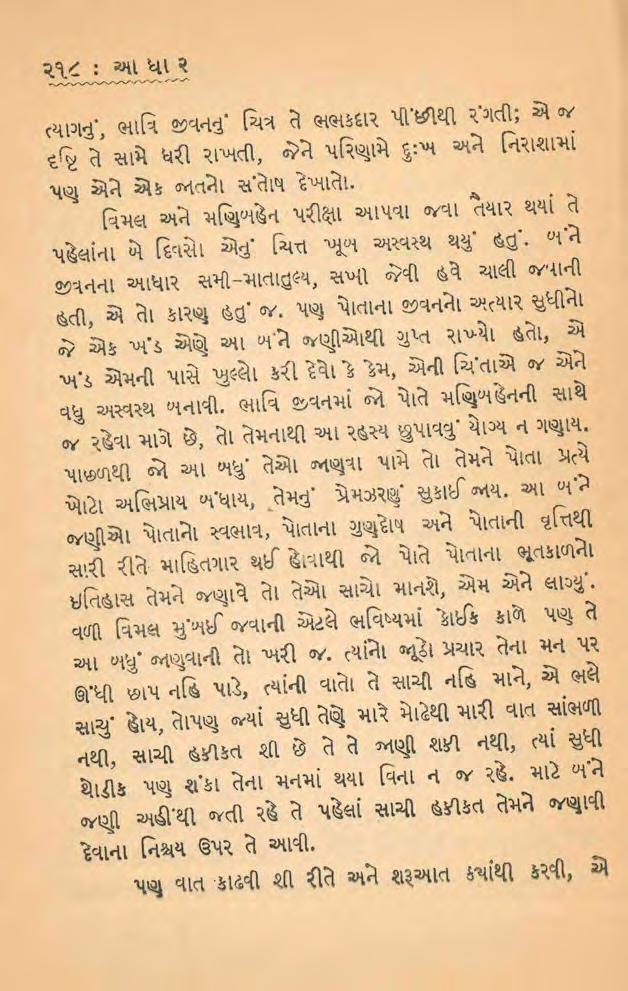 ૨૧૮ : આ ધા ર
ત્યાગનું, ભાવિ જીવનનું ચિત્ર તે ભભકદાર પીંછીથી રંગતી; એ જ
દૃષ્ટિ તે સામે ધરી રાખતી, જેને પરિણામે દુઃખ અને નિરાશામાં
પણ એને એક જાતનો સંતોષ દેખાતો.
વિમલ અને મણિબહેન પરીક્ષા આપવા જવા તૈયાર થયાં તે
પહેલાંના બે દિવસો એનું ચિત્ત ખૂબ અસ્વસ્થ થયું હતું. બંને
જીવનના આધાર સમી-માતાતુલ્ય, સખી જેવી હવે ચાલી જવાની
હતી, એ તો કારણ હતું જ. પણ પોતાના જીવનનો અત્યાર સુધીનો
જે એક ખંડ એણે આ બંને જણીઓથી ગુપ્ત રાખ્યો હતો, એ
ખંડ એમની પાસે ખુલ્લો કરી દેવો કે કેમ, એની ચિંતાએ જ એને
વધુ અસ્વસ્થ બનાવી. ભાવિ જીવનમાં જો પોતે મણિબહેનની સાથે
જ રહેવા માગે છે, તો તેમનાથી આ રહસ્ય છુપાવવું યોગ્ય ન ગણાય.
પાછળથી જો આ બધું તેઓ જાણવા પામે તો તેમને પોતા પ્રત્યે
ખોટો અભિપ્રાય બંધાય, તેમનું પ્રેમઝરણું સુકાઈ જાય. આ બંને
જણીઓ પોતાનો સ્વભાવ, પોતાના ગુણદોષ અને પોતાની વૃત્તિથી
સારી રીતે માહિતગાર થઈ હોવાથી જો પોતે પોતાના ભૂતકાળનો
ઇતિહાસ તેમને જણાવે તો તેઓ સાચો માનશે, એમ એને લાગ્યું.
વળી વિમલ મુંબઈ જવાની એટલે ભવિષ્યમાં કોઈક કાળે પણ તે
આ બધું જાણવાની તો ખરી જ. ત્યાંનો જૂઠો પ્રચાર તેના મન પર
ઊંધી છાપ નહિ પાડે, ત્યાંની વાતો તે સાચી નહિ માને, એ ભલે
સાચું હોય, તોપણ જ્યાં સુધી તેણે મારે મોઢેથી મારી વાત સાંભળી
નથી, સાચી હકીકત શી છે તે તે જાણી શકી નથી, ત્યાં સુધી
થોડીક પણ શંકા તેના મનમાં થયા વિના ન જ રહે. માટે બંને
જણી અહીંથી જતી રહે તે પહેલાં સાચી હકીકત તેમને જણાવી
દેવાના નિશ્ચય ઉપર તે આવી.
પણ વાત કાઢવી શી રીતે અને શરૂઆત ક્યાંથી કરવી, એ